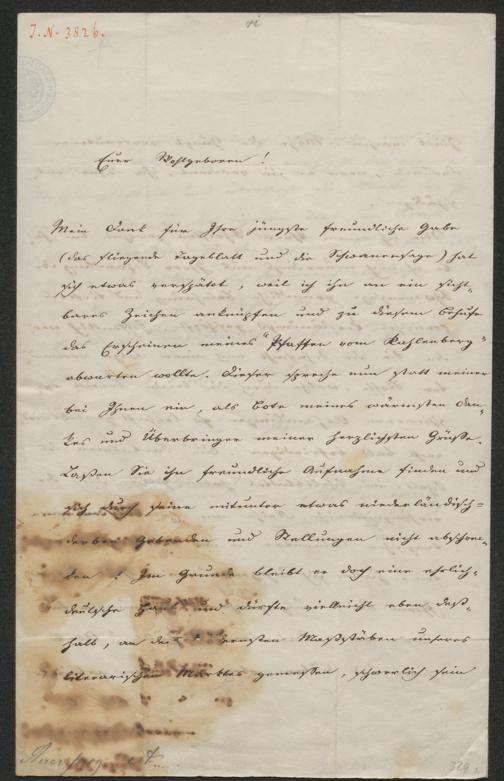 J. N. 3826.
Euer Wohlgeboren!
Mein Dank für Ihre jüngste freundliche Gabe
(das fliegende Tageblatt und die Schwanensage) hat
sich etwas verspätet, weil ich ihn an ein sicht-
bares Zeichen anknüpfen und zu diesem Behufe
das Erscheinen meines "Pfaffen vom Kahlenberg"
abwarten wollte. Dieser spreche nun statt meiner
bei Ihnen ein, als Bote meines wärmsten Dan-
kes und Überbringer meiner herzlichsten Grüße.
Laßen Sie ihn freundliche Aufnahme finden und
sich durch seine mitunter etwas niederländisch-
derben Geberden und Stellungen nicht abschre-
ken! Im Grunde bleibt er doch eine ehrlich-
deutsche Haut und dürfte vielleicht eben deß-
halb, an den ernsten Maßstäben unseres
literarischen Marktes gemessen, schwerlich sein
329.